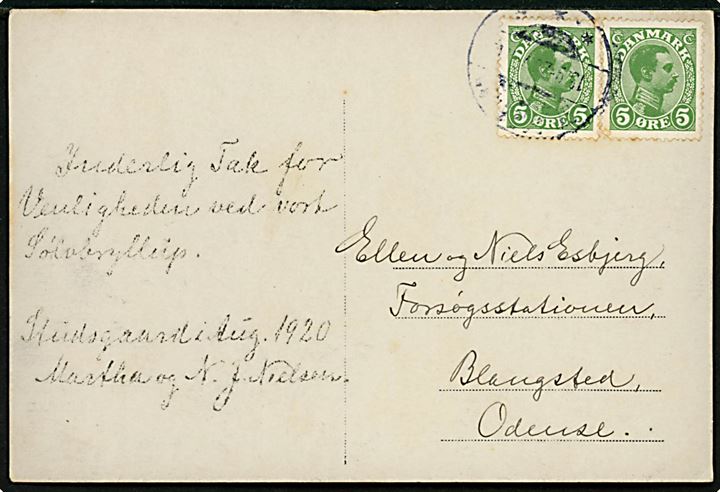 DANMARK
5 ØRE 5
DANMARK
5 ØRE 5
Inderlig Tak for
Venligheden ved vort
Sølvbryllup.
Studsgaard i Aug. 1920
Martha og N. J. Nielsen.
Ellen og Niels Esbjerg,
Forsøgsstationen,
Blangsted,
Odense.